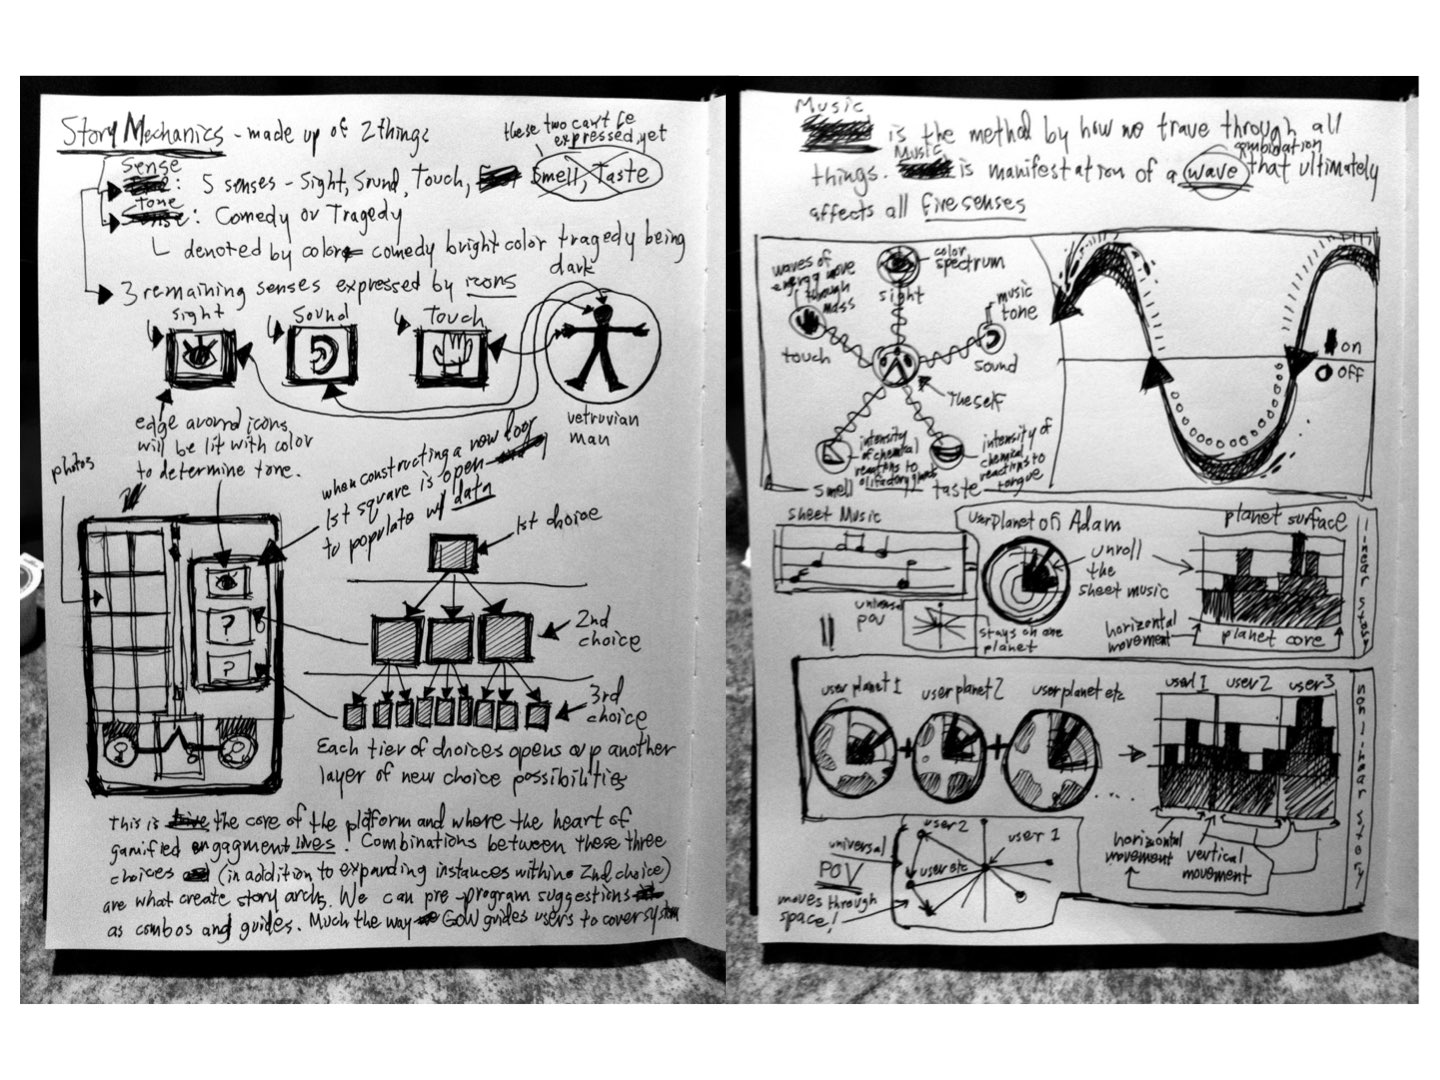 Story Mechanics - made up of 2 things
these two can't be
expressed yet
Sense
: 5 senses - Sight, Sound, Touch, Smell, Taste
Tone
: Comedy or Tragedy
denoted by color comedy bright color tragedy being
dark
3 remaining senses expressed by icons
Sight
Sound
Touch
vetruvian
man
edge around icons
will be lit with color
to determine tone.
photos
when constructing a new
1st square is open
to populate w/ data
?
?
1st choice
2nd
choice
3rd
choice
Each tier of choices opens up another
layer of new choice possibilities
This is the core of the platform and where the heart of
gamified engagment lives. Combinations between these three
choices (in addition to expanding instances within 2nd choice)
are what create story archs. We can pre-program suggestions
as combos and guides. Much the way GoW guides users to cover system
Music
is the method by how we trave through all
things. Music is manifestation of a combination wave that ultimately
affects all five senses
waves of
energy move
through
mass
touch
color
spectrum
sight
music
tone
sound
The self
intensity
of chemical
reactions to
olfactory glands
smell
intensity of
chemical
reactions to
tongue
taste
on
off
sheet Music
user planet of Adam
unroll
the
sheet music
stays on one
planet
universal
POV
planet surface
horizontal
movement
planet core
linear story
user planet 1
user planet 2
user planet etc
+
+
user 1
user 2
user 3
non linear story
horizontal
movement
vertical
movement
universal
POV
moves through
space!
user 2
user 1
user etc